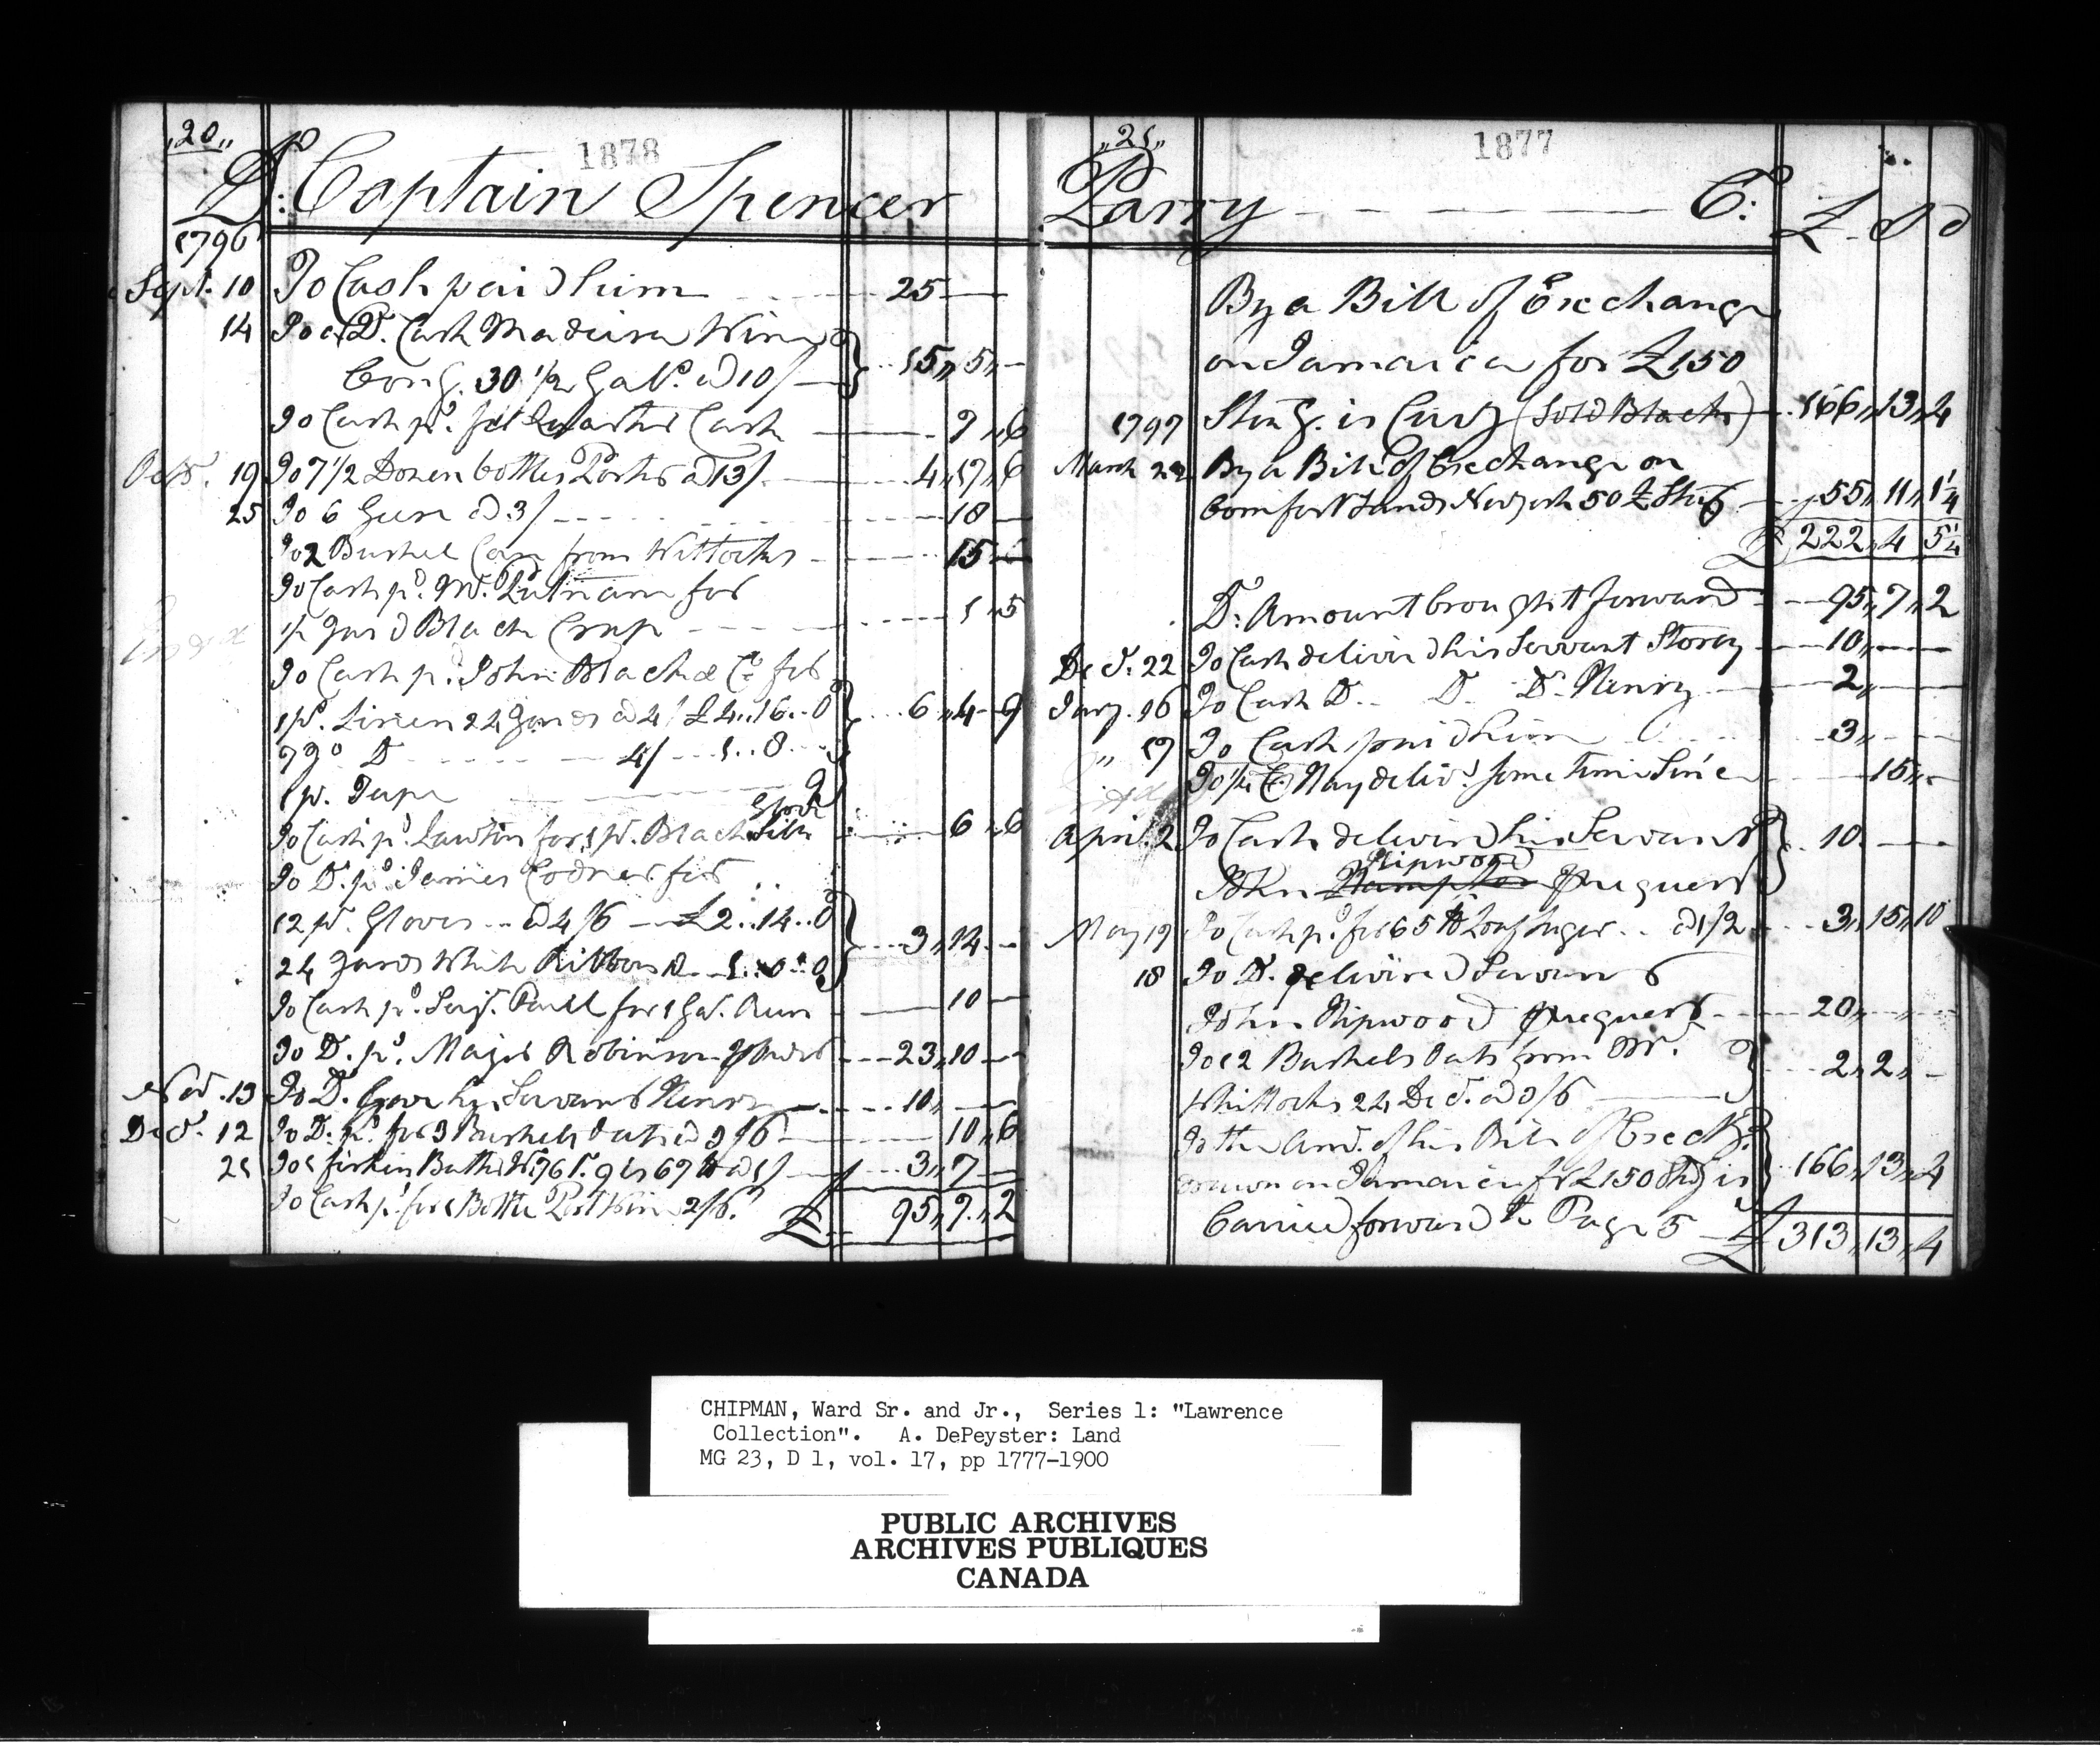 „20„
1878
Dr: Captain Spencer
1796
Sept. 10 To Cash paid him 25
14 To a Qr. Cask Madeira Wine
Cong. 30 1/2 Gals. @ 10/ 15„5„
To Cash pd. for Quarter Cask 7„6
Octr. 19 To 7 1/2 Dozen bottles Porter @ 13/ 4„17„6
25 To 6 Geese @ 3/ 18
To 2 Bushel from Whitlocks 15
To Cash pd. Mr. Putnam for
Yard Black Crape 1„5
To Cash pd. John Black & Co. for
1 ps. Linen 24 Yards @ 4/ £4..16..0 6„4 9
7 Yd D. 4/ 1..8
1 ps. Tape
Glove
To Cash pd. Lawton for 1 pr. Black Silk 6„6
To D. pd. James Codner for
12 pr. Gloves @ 4/6 £2..14..0
24 Yards White Ribbon 1..0..0 3„14
To Cash pd. Serjt. Paull for 1 Gal. Rum 10
To D. pd. Major Robinson 23„10
Novr. 13 To D. Gave his Servant Henry 10„
Decr. 12 To D. pd. for 3 Bushels Oats @ 3/6 10„6
21 To 1 firkin Butter Wt. 76 T. 9 is 67 lb @ 1/ 3„7
To Cash pd. for 1 Bottle Port Wine 2/6
£ 95„7„2
„21„
1877
Parry Cr: £ S d
By a Bill of Exchange
on Jamaica for £150
1797 Sterg. is Curry (Sold Black) 166„13„4
March 22 By a Bill of Exchange on
Comfort Sands New york 50£ Sterg 55„11„1 1/4
£ 222„4 5 1/4
D: Amount brought forward 95„7„2
Decr. 22 To Cash deliverd his Servant Storey 10„
Jany. 16 To Cash D. D. D. Henry 2„
„ 17 To Cash paid him 3„
To Hay delivd. some time Since 15„
April 2 To Cash deliverd his Servant 10
Ripwood
John Hampton Request
May 17 To Cash pd. for 65 lb Loaf Sugar @ 1/2 3„15„10
18 To D. deliverd Servant
John Ripwood Request 20„
To 12 Bushels Oats from Mr.
Whitlocks 24 Decr. @ 3/6 2„2„
To the Amt. of his Bill of Exch.
drawn on Jamaica for £150 Stg is 166„13„4
Carried forward to Page 5 £ 313„13„4
CHIPMAN, Ward Sr. and Jr., Series 1: "Lawrence
Collection". A. DePeyster: Land
MG 23, D 1, vol. 17, pp 1777-1900
PUBLIC ARCHIVES
ARCHIVES PUBLIQUES
CANADA